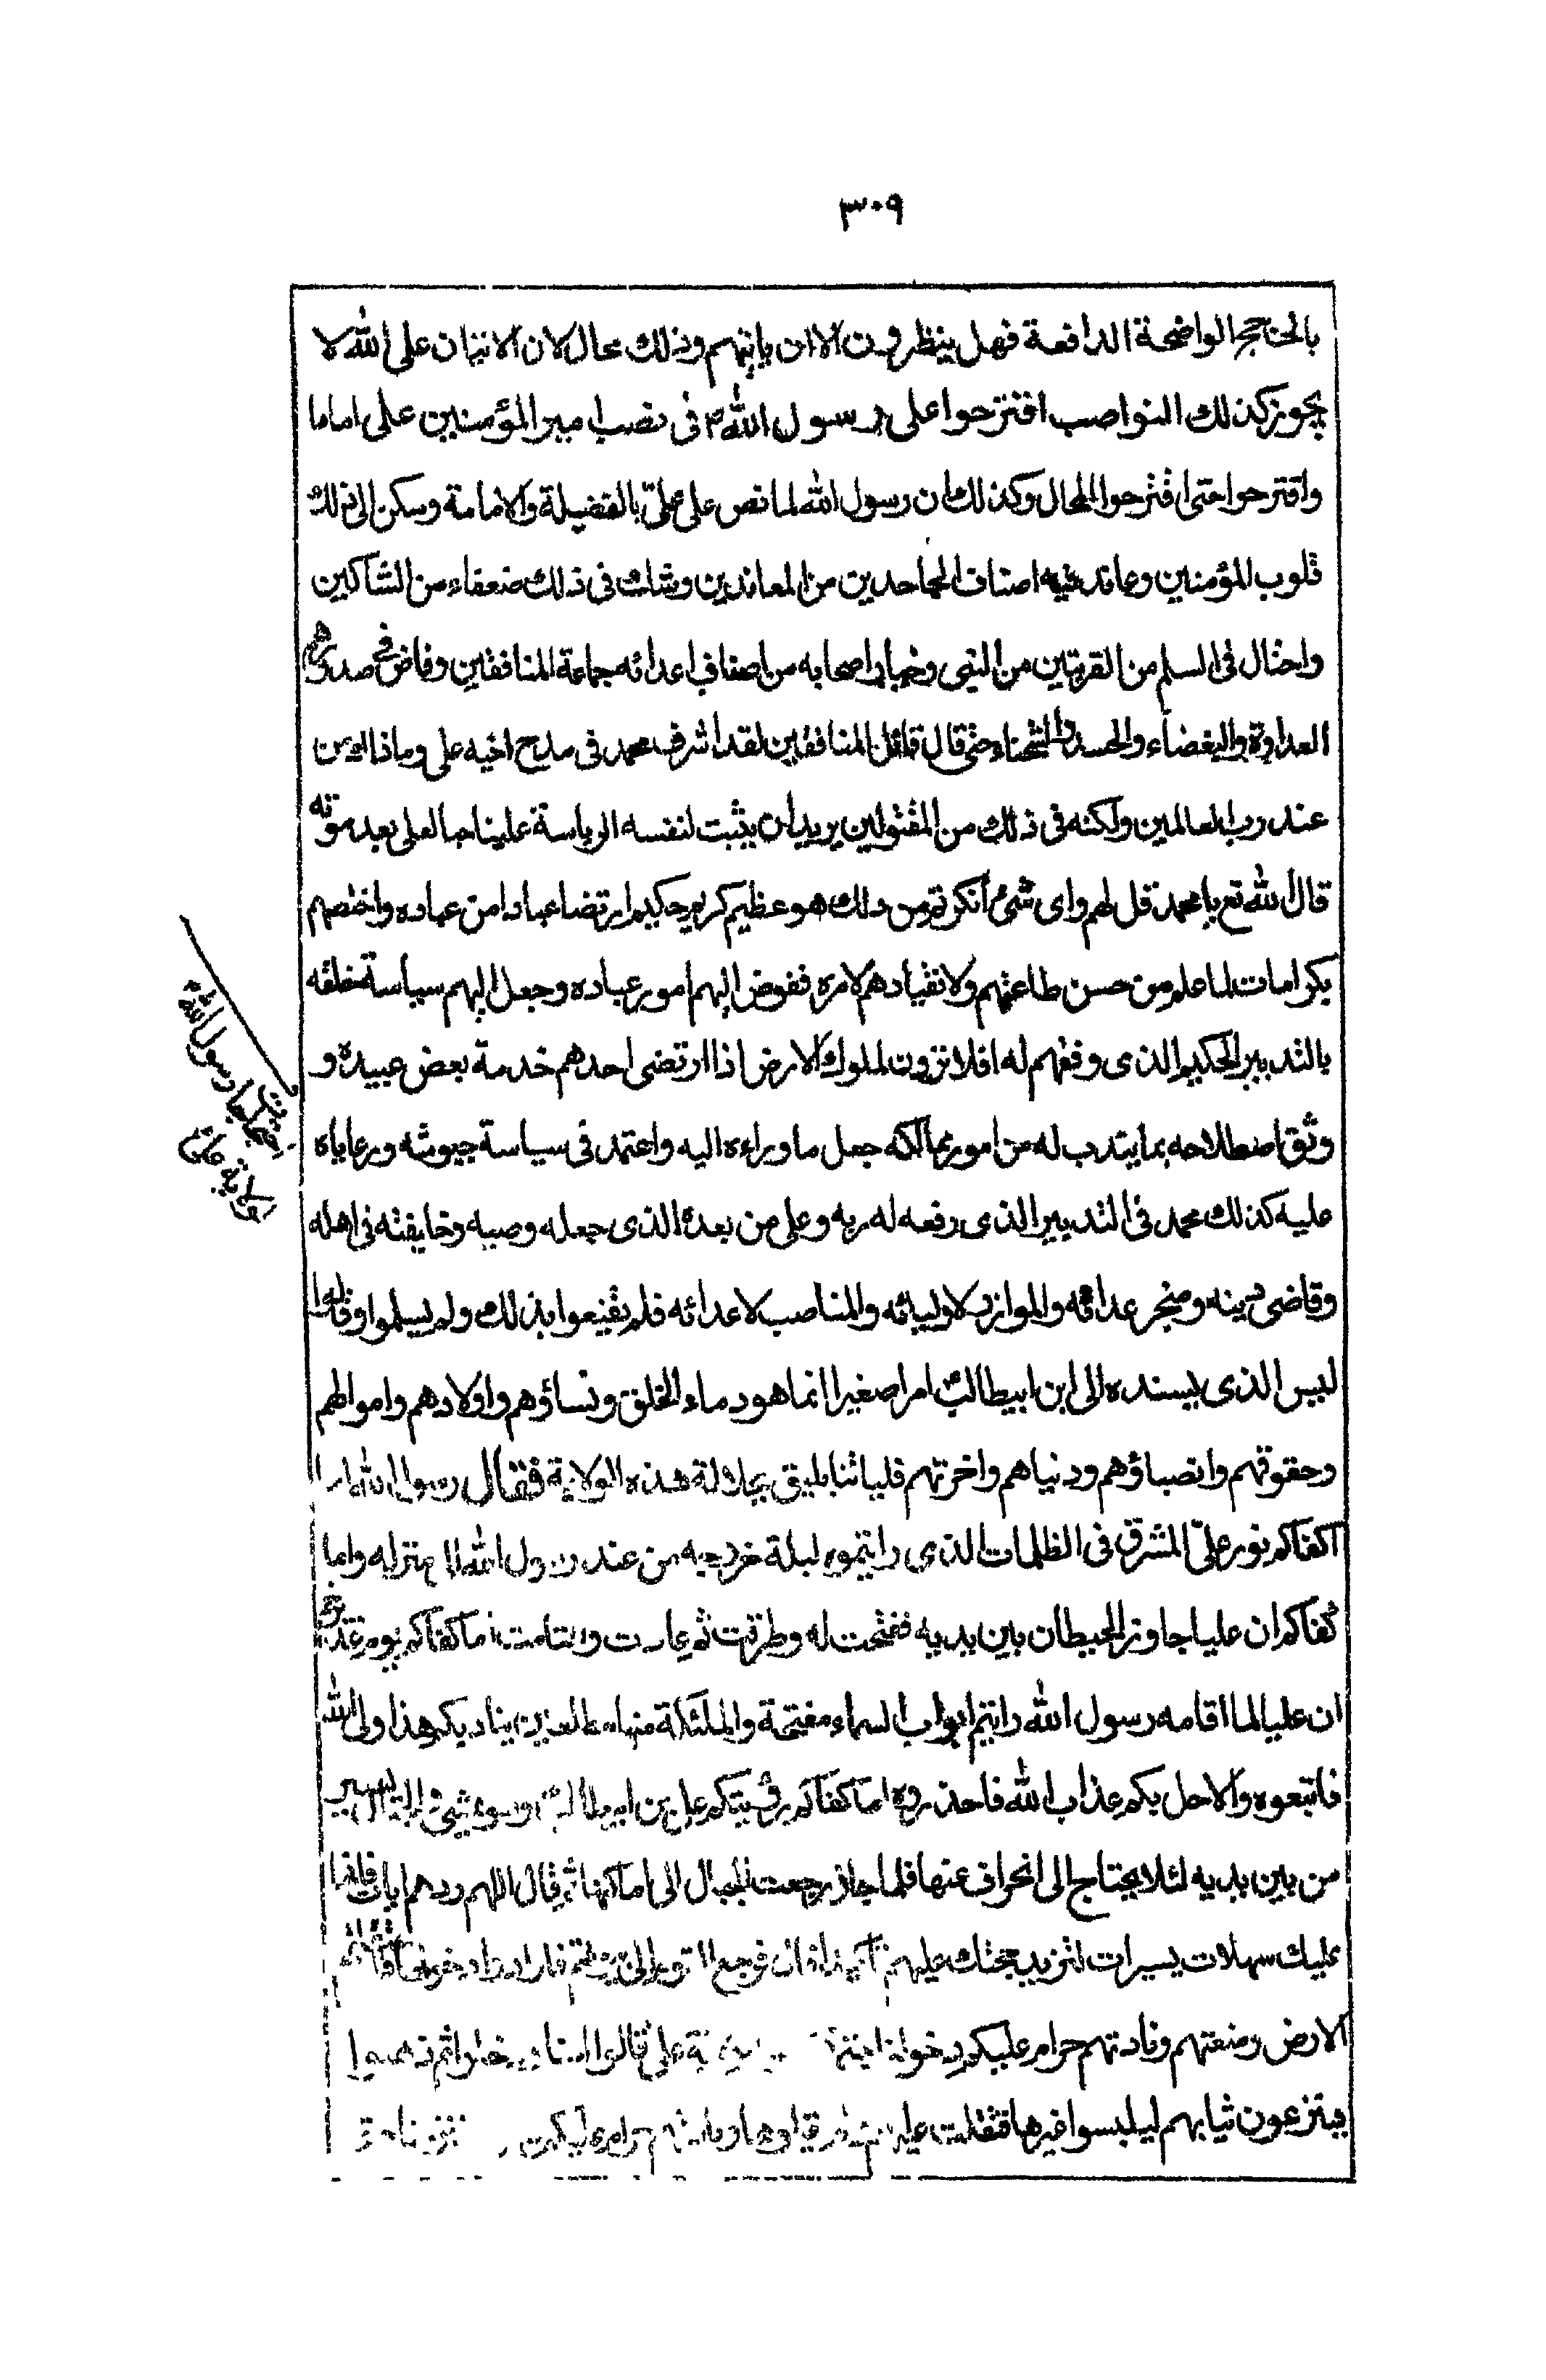 ٣٠٩
بالحجج الواضحة الدافعة فهل ينظرون الا ان ياتيهم وذلك محال لان الاتيان على الله لا
يجوز كذلك النواصب اقترحوا على رسول الله ص في نصب امير المؤمنين على اماما
واقترحوا حتى اقترحوا المحال وكذلك ان رسول الله لما نص على علىّ بالفضيلة والامامة وسكن الى ذلك
قلوب المؤمنين وعاند فيه اصناف الجاحدين من المعاندين وشك في ذلك ضعفاء من الشاكين
واحتال في السلم من الفريقين من النبى وخيار اصحابه من اصناف اعدائه جماعة المنافقين وفاض في صدورهم
العداوة والبغضاء والحسد والشحناء حتى قال قائل المنافقين لقد اسرف محمد في مدح اخيه على وما ذلك من
عند رب العالمين ولكنه في ذلك من المتقولين يريد ان يثبت لنفسه الرياسة علينا حيا لعلى بعد موته
قال الله تع يا محمد قل لهم واى شئ انكرتم من ذلك هو عظيم كريم حكيم ارتضا عبادا من عباده واختصهم
بكرامات لما علم من حسن طاعتهم ولانقيادهم لامره ففوض اليهم امور عباده وجعل اليهم سياسة خلقه
بالتدبير الحكيم الذى وفقهم له افلا ترون لملوك الارض اذا ارتضى احدهم خدمة بعض عبيده و
وثق اضطلاحه بما يتدب له من امور ممالكه جعل ما وراءه اليه واعتمد في سياسة جيوشه ورعاياه
عليه كذلك محمد في التدبير الذى رفعه له ربه وعلى من بعده الذى جعله وصيه وخليفته في اهله
وقاضى دينه ومنجز عداته والموازر لاوليائه والمناصب لاعدائه فلم يقنعوا بذلك ولم يسلموا وقالوا
ليس الذى يسنده الى ابن ابيطالب امرا صغيرا انما هو دماء الخلق ونساؤهم واولادهم واموالهم
وحقوقهم وانصباؤهم ودنياهم واخرتهم فلياتنا بليق بجلالة هذه الولاية فقال رسول الله اما
اكفاكم نور علىّ المشرق في الظلمات الذى رايتموه ليلة خروجه من عند رسول الله الى منزله واما
كفاكم ان عليا جاوز الحيطان بين يديه ففتحت له وطرقت ثم عادت والتامت اما كفاكم يوم غدير خم
ان عليا لما اقامه رسول الله رايتم ابواب السماء مفتحة والملئكة منها مطلعين يناديكم هذا ولى الله
فاتبعوه والاحل بكم عذاب الله فاحذروه اما كفاكم رؤيتكم على بن ابيطالب وهو يمشى والجبال تسير
من بين يديه لئلا يحتاج الى انحراف عنها فلما جاز رجعت الجبال الى اماكنها ثم قال اللهم زدهم ايات فانها
عليك سهلات يسيرات لتزيد حجتك عليهم قال فرجع القوم الى بيوتهم فارادوا دخولها
الارض ومنعتهم ونادتهم حرام عليكم دخولها على قالوا امنا ودخلوا ثم ذهبوا
ينزعون ثيابهم ليلبسوا غيرها فثقلت عليهم حرام عليكم
ولاية على